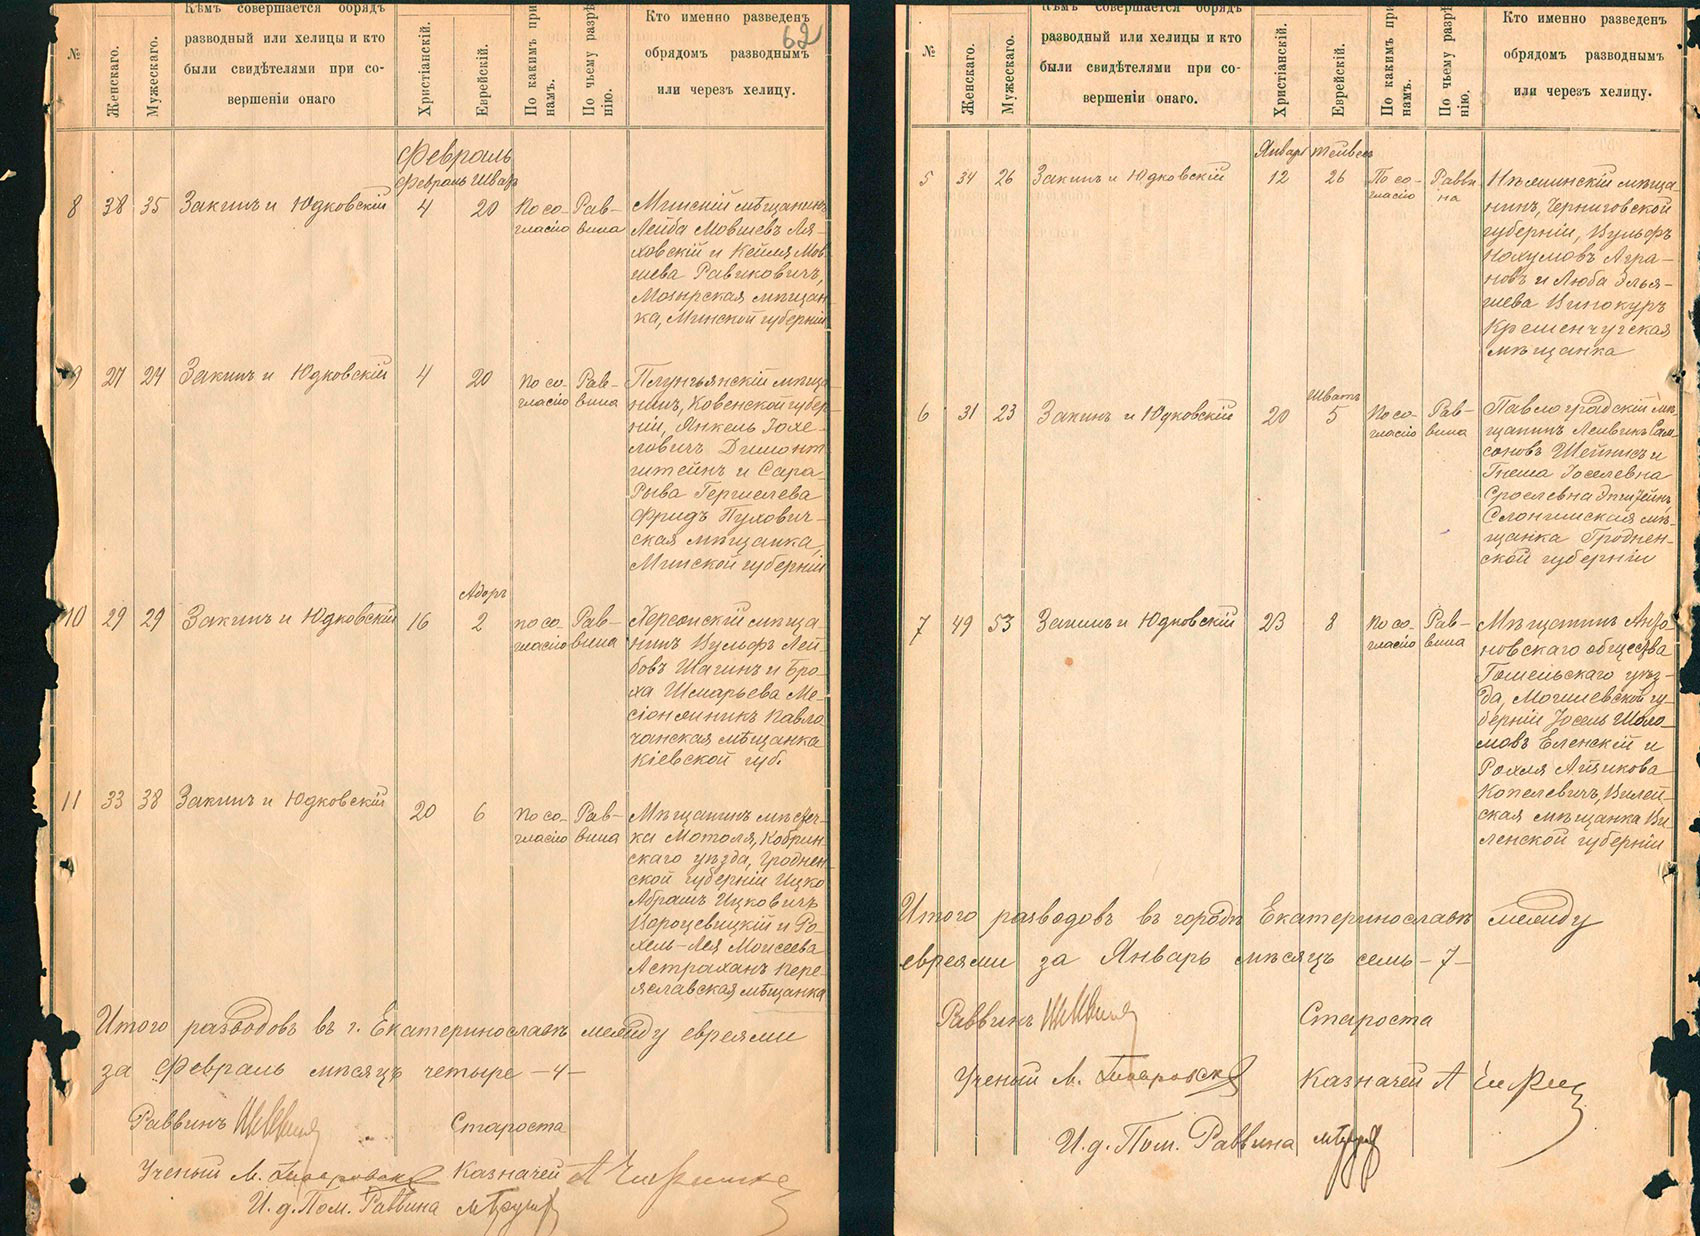 62
№
Женскаго.
Мужескаго.
Кѣмъ совершается обрядъ
разводный или хелицы и кто
были свидѣтелями при со-
вершеніи онаго
Христіанскій.
Еврейскій.
По какимъ при
намъ.
По чьему разрѣ
нію.
Кто именно разведенъ
обрядомъ разводнымъ
или через хелицу.
Февраль
Февраль Шват
8 38 35 Закинъ и Юдковскій 4 20
по со-
гласію
Рав-
вина
Минскій мѣщанинъ
Лейба Мовшевъ Ля-
ховскій и Кейля Мов
шева Равикович,
Мозырская мѣщан-
ка, Минской губерніи
9 27 24 Закинъ и Юдковскій 4 20
по со-
гласію
Рав-
вина
Плунгянскій мѣща
нинъ, Ковенской губер-
ніи, Янкель Іохе-
ловичъ Димонт
штейнъ и Сара
Рыва Гершелева
Фридъ Пухович-
ская мѣщанка,
Минской губерніи
Адаръ
10 29 29 Закинъ и Юдковскій 16 2
по со-
гласію
Рав-
вина
Херсонскій мѣща
нинъ Вульфъ Лей
бовъ Шагинъ и Бро-
ха Шмарьева Ме-
Павло
чанская мѣщанка
Кіевской губ.
11 33 38 Закинъ и Юдковскій 20 6
по со-
гласію
Рав-
вина
Мѣщанинъ мѣстеч-
ка Мотоля, Кобрин-
скаго уѣзда, Гроднен
ской губерніи Ицко
Абрамъ Ицковичъ
Вороцевицкій и Ро-
хель-Лея Моисеева
Астраханъ Пере-
яславская мѣщанка
Итого разводовъ въ г. Екатеринославѣ между евреями
за Февраль мѣсяцъ четыре -4-
Раввинъ
Староста
Ученый М.
Казначей А
И. д. Пом. Раввина
№
Женскаго.
Мужескаго.
Кѣмъ совершается обрядъ
разводный или хелицы и кто
были свидѣтелями при со-
вершеніи онаго.
Христіанскій.
Еврейскій.
По какимъ при
намъ.
По чьему разрѣ
нію.
Кто именно разведенъ
обрядомъ разводнымъ
или через хелицу.
Январь Тейвесъ
5 34 26 Закинъ и Юдковскій 12 26
По со-
гласію
Равви
на
мѣща-
нинъ, Черниговской
губерніи, Вульфъ
Нохумовъ Агра-
новъ и Люба Элья-
шева Винокуръ
Кременчугская
мѣщанка
Шватъ
6 31 23 Закинъ и Юдковскій 20 5
по со-
гласію
Рав-
вина
Павлоградскій мѣ-
щанинъ Лейвикъ Сам-
соновъ Шейнисъ и
Гнеша Іоселевна
Сроелевна
Слонимская мѣ-
щанка Гроднен-
ской губерніи
7 49 53 Закинъ и Юдковскій 23 8
по со-
гласію
Рав-
вина
Мѣщанинъ
новскаго общества
Гомельскаго уѣз-
да, Могилевской гу-
берніи Іосель Шоло-
мовъ Еленскій и
Рохля Айзикова
Копелевичъ, Вилей-
ская мѣщанка Ви-
ленской губерніи
Итого разводовъ въ городѣ Екатеринославѣ между
евреями за Январь мѣсяцъ семь -7-
Раввинъ
Староста
Ученый М.
Казначей А
И. д. Пом. Раввина